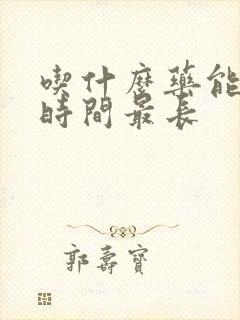 喫什麼藥能
時間最長
郭壽寶